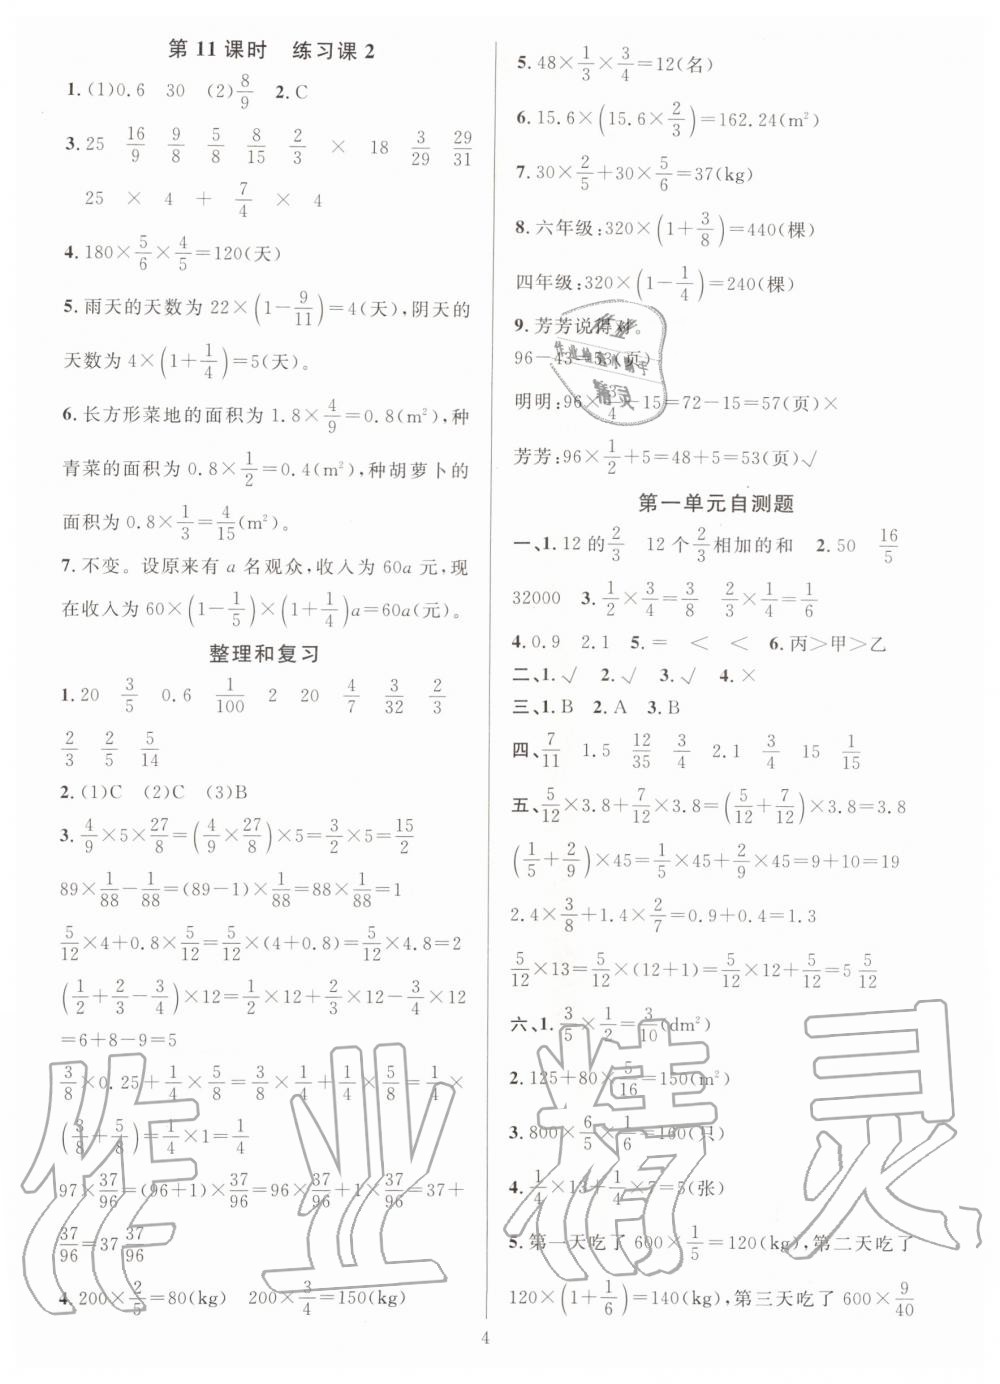 第 11 课时　练习课 2
1. (1)0.6　30　(2)8/9　2. C
3. 25　16/9　9/8　5/8　8/15　2/3　×　18　3/29　29/31
25　×　4　+　7/4　×　4
4. 180×5/6×4/5=120(天)
5. 雨天的天数为 22×(1-9/11)=4(天),阴天的
天数为 4×(1+1/4)=5(天)。
6. 长方形菜地的面积为 1.8×4/9=0.8(m²),种
青菜的面积为 0.8×1/2=0.4(m²),种胡萝卜的
面积为 0.8×1/3=4/15(m²)。
7. 不变。设原来有 a 名观众,收入为 60a 元,现
在收入为 60×(1-1/5)×(1+1/4)a=60a(元)。
整理和复习
1. 20　3/5　0.6　1/100　2　20　4/7　3/32　2/3
2/3　2/5　5/14
2. (1)C　(2)C　(3)B
3. 4/9×5×27/8=(4/9×27/8)×5=3/2×5=15/2
89×1/88-1/88=(89-1)×1/88=88×1/88=1
5/12×4+0.8×5/12=5/12×(4+0.8)=5/12×4.8=2
(1/2+2/3-3/4)×12=1/2×12+2/3×12-3/4×12
=6+8-9=5
3/8×0.25+1/4×5/8=3/8×1/4+1/4×5/8=1/4×
(3/8+5/8)=1/4×1=1/4
97×37/96=(96+1)×37/96=96×37/96+1×37/96=37+
37/96=37 37/96
4. 200×2/5=80(kg)　200×3/4=150(kg)
5. 48×1/3×3/4=12(名)
6. 15.6×(15.6×2/3)=162.24(m²)
7. 30×2/5+30×5/6=37(kg)
8. 六年级:320×(1+3/8)=440(棵)
四年级:320×(1-1/4)=240(棵)
9. 芳芳说得对。
96-43=53(页)
明明:96×3/4-15=72-15=57(页)×
芳芳:96×1/2+5=48+5=53(页)√
第一单元自测题
一、1. 12 的 2/3　12 个 2/3 相加的和　2. 50　16/5
32000　3. 1/2×3/4=3/8　2/3×1/4=1/6
4. 0.9　2.1　5. =　<　<　6. 丙>甲>乙
二、1. √　2. √　3. √　4. ×
三、1. B　2. A　3. B
四、7/11　1.5　12/35　3/4　2.1　3/4　15　1/15
五、5/12×3.8+7/12×3.8=(5/12+7/12)×3.8=3.8
(1/5+2/9)×45=1/5×45+2/9×45=9+10=19
2.4×3/8+1.4×2/7=0.9+0.4=1.3
5/12×13=5/12×(12+1)=5/12×12+5/12=5 5/12
六、1. 3/5×1/2=3/10(dm²)
2. 125+80×5/16=150(m²)
3. 800×6/5×1/6=160(只)
4. 1/4×13+1/4×7=5(张)
5. 第一天吃了 600×1/5=120(kg),第二天吃了
120×(1+1/6)=140(kg),第三天吃了 600×9/40
4
作业精灵